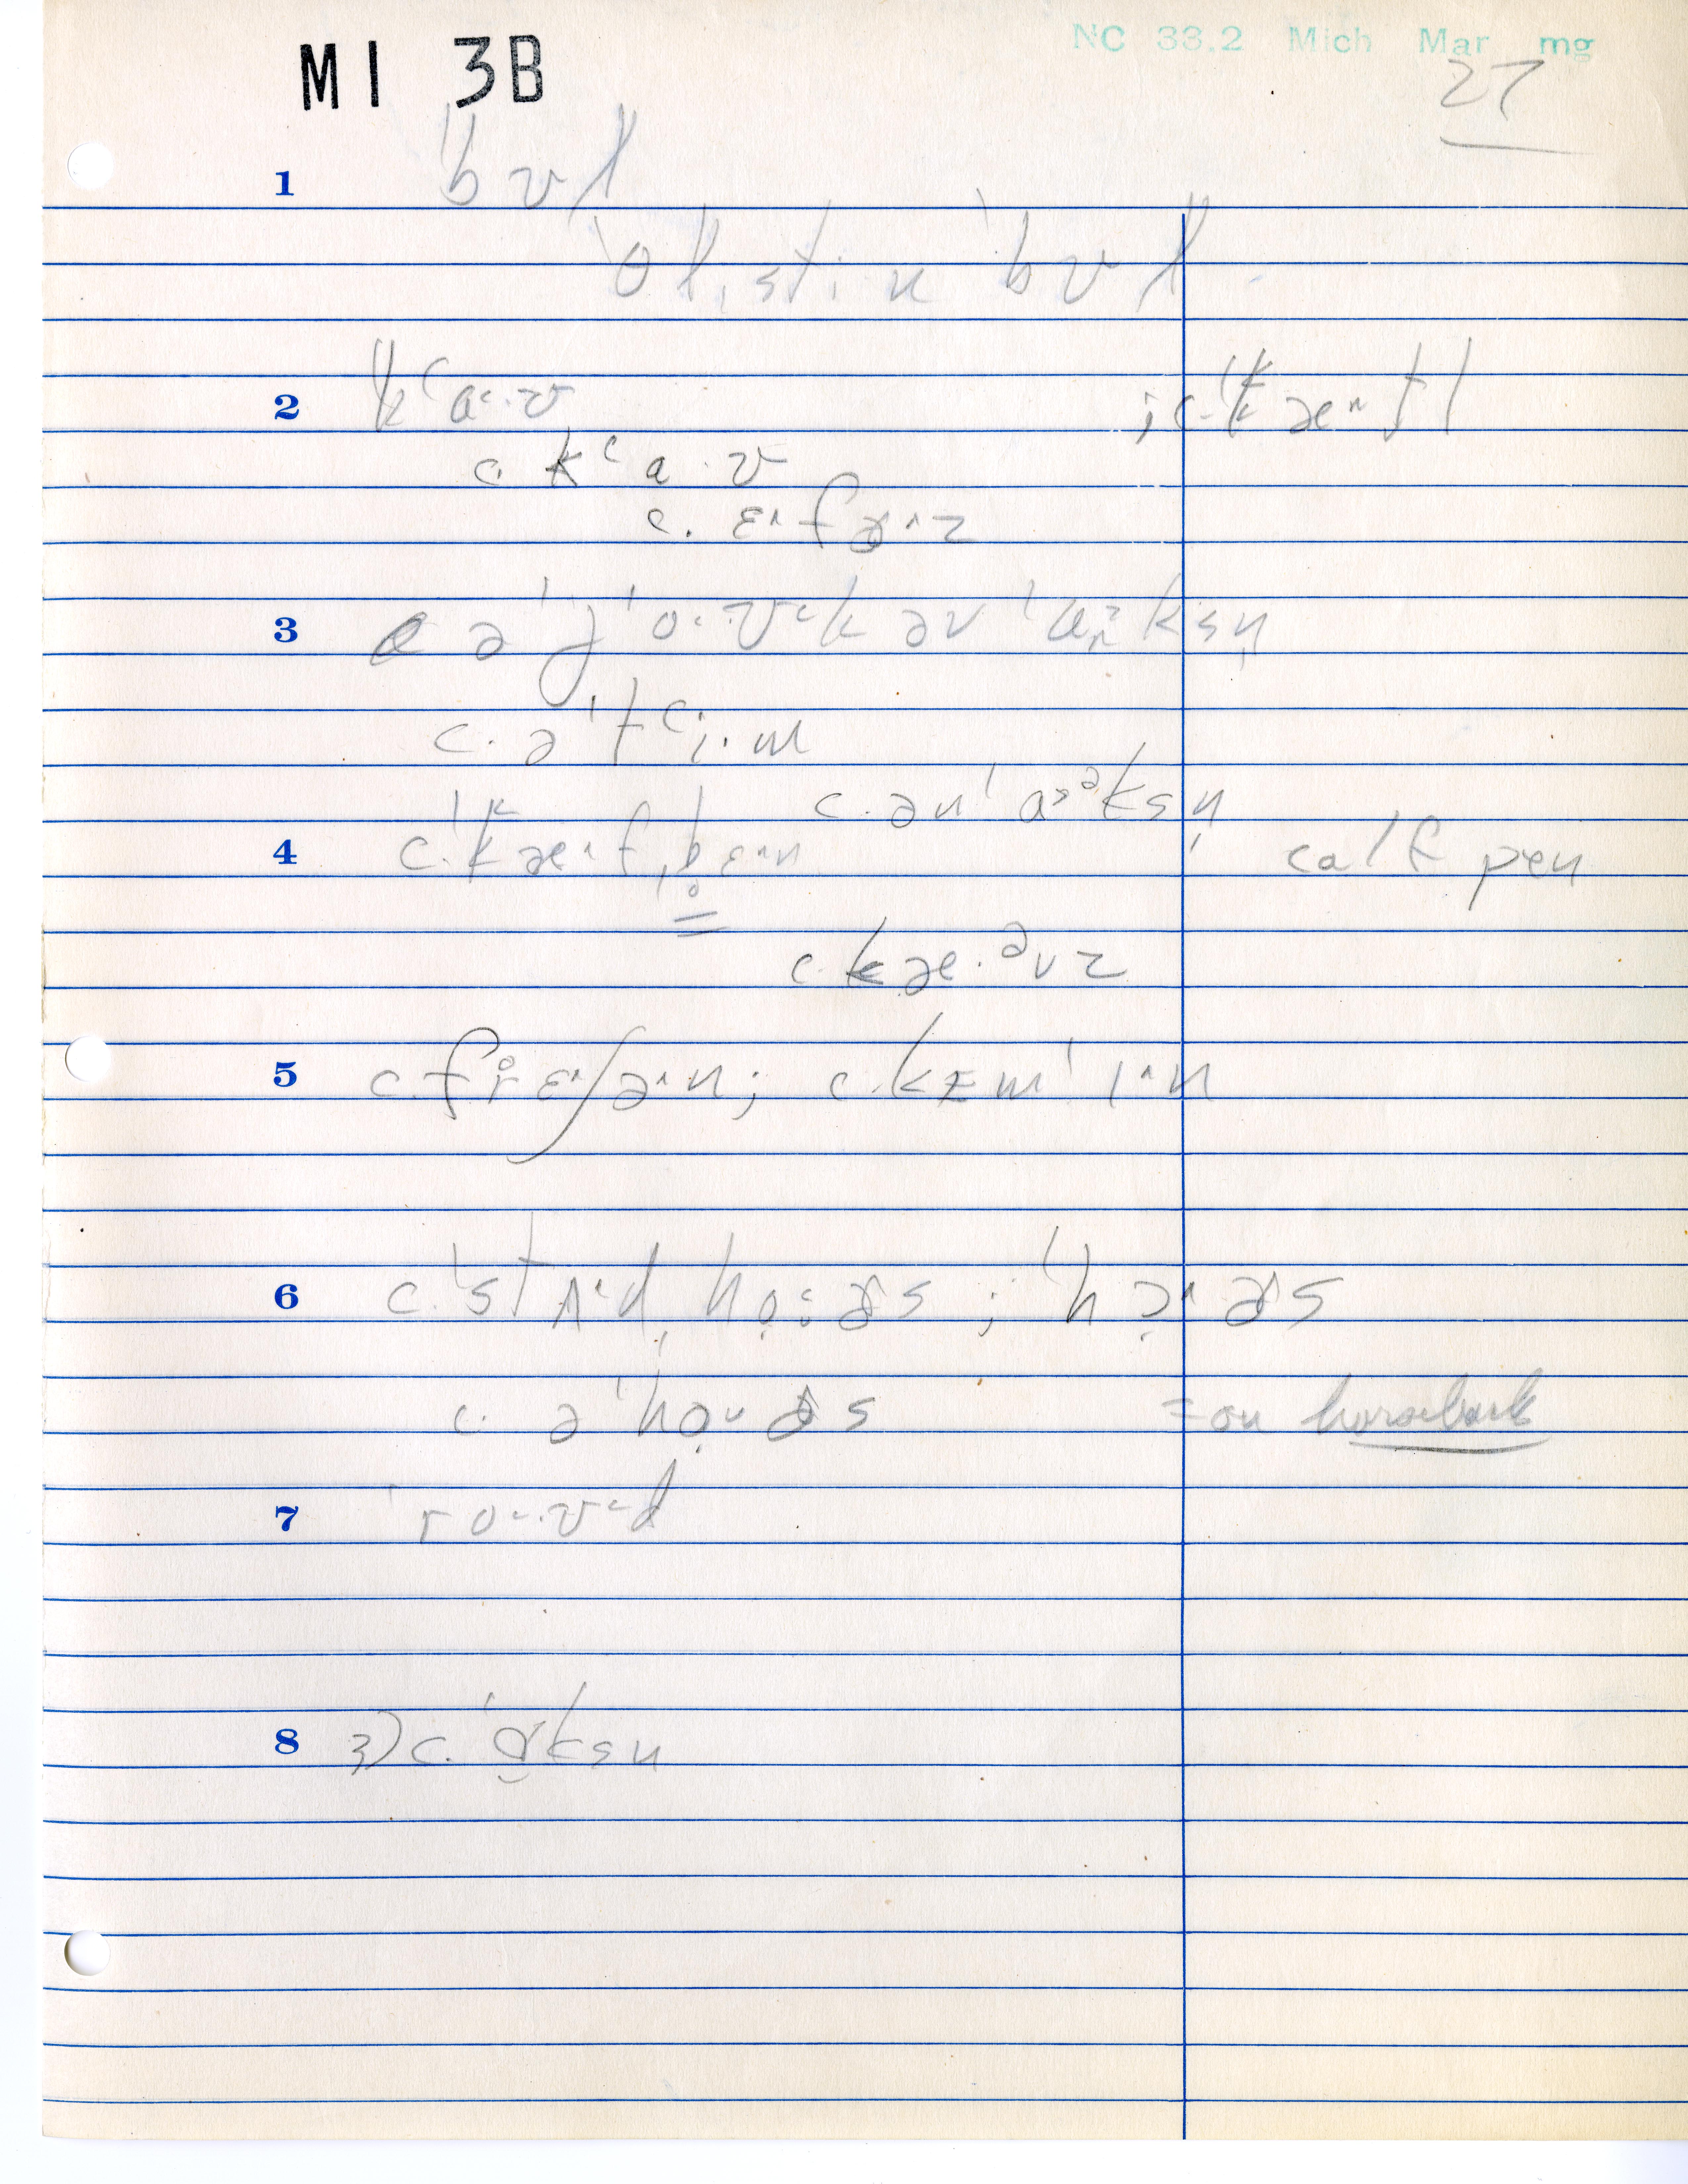 MI 3B
NC 33.2 Mich Mar mg
27
1 ˈbʊl
ˈoʟˌstiˑn ˈbʊl
2 kʻaˑʊ
c. kʻaˑʊ
c. ɛˑfɚˑz
3 ə ˈjoˑʊk əv ˈɑˑksn̩
c. ə ˈtʻiˑm
c. ən ˈɑˑᵊksn̩
4 c. ˈkæˑf ˌb̥ɛˑn calf pen
c. kæˑᵊvz
5 c. fr̥ɛˑʃəˑn; c. kɪm ˈɪˑn
6 c. ˈstʌˑd ˌho̜ˑɚs ; ˈhɔ̜ˑɚs
c. ə ˈho̜ˑɚs = on horseback
7 ˈroˑʊd
8 3) c. ˈɑksn